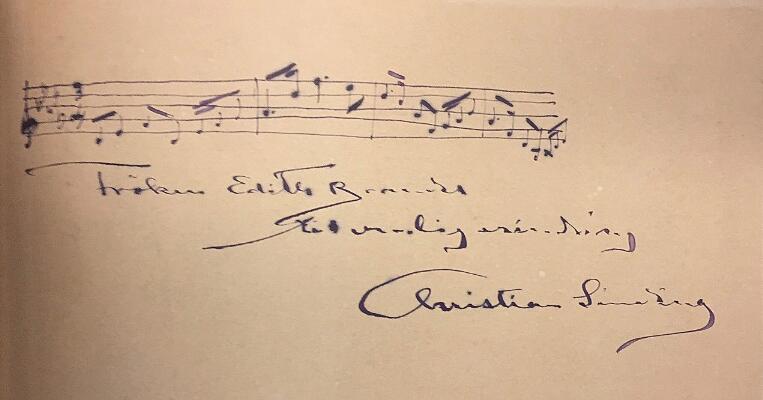 Fröken Edith Brandes
til venlig erindring
Christian Sinding